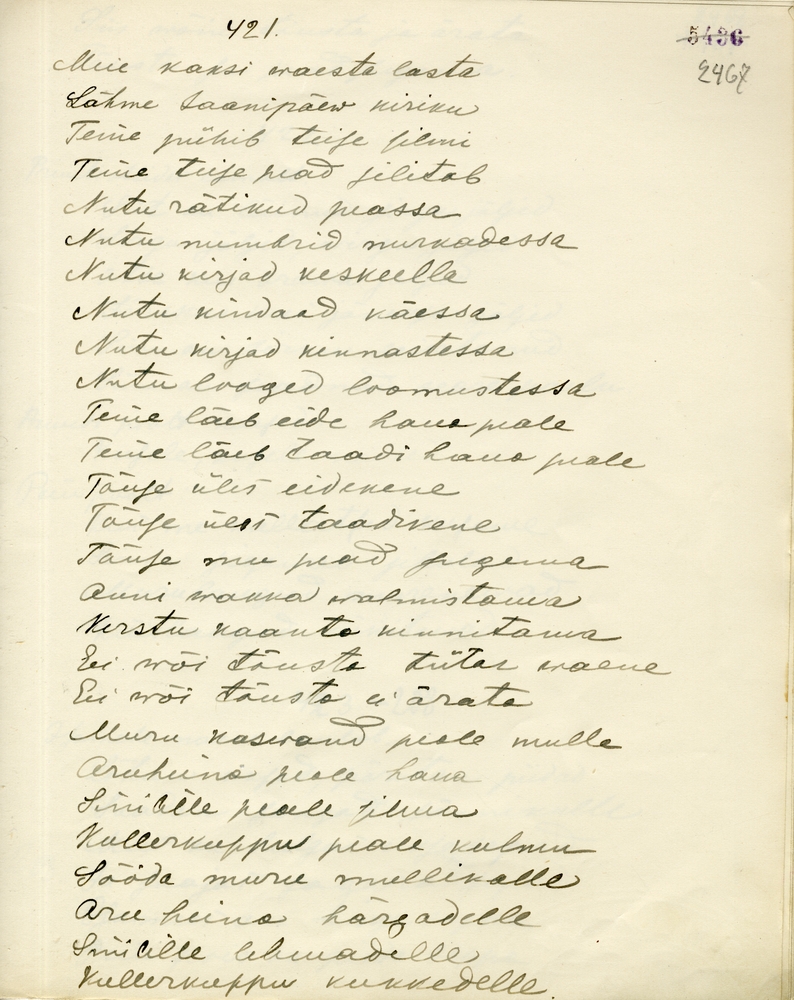 421.
5436
2467
Meie kaksi waesta lasta
Lähme Jaanipäew kiriku
Teine pühib teise silmi
Teine teise pead silitab
Nutu rätikud peassa
Nutu numbrid nurkadessa
Nutu kirjad keskeella
Nutu kindaad käessa
Nutu kirjad kinnastessa
Nutu looged loomustessa
Teine läeb eide haua peale
Teine läeb taadi haua peale
Tõuse üles eidekene
Tõuse üles taadikene
Tõuse mu pead sugema
Anni wakka walmistama
Kerstu kaanta kinnitama
Ei wõi tõusta tütar waene
Ei wõi tõusta ei ärata
Muru kaswand peale mulle
Aruheina peale haua
Sinilille peale silma
Kullerkuppu peale kulmu
Sööda muru mullikalle
Aru heina härgadelle
Sinilille lehmadelle
Kullerkuppu kukkedelle.